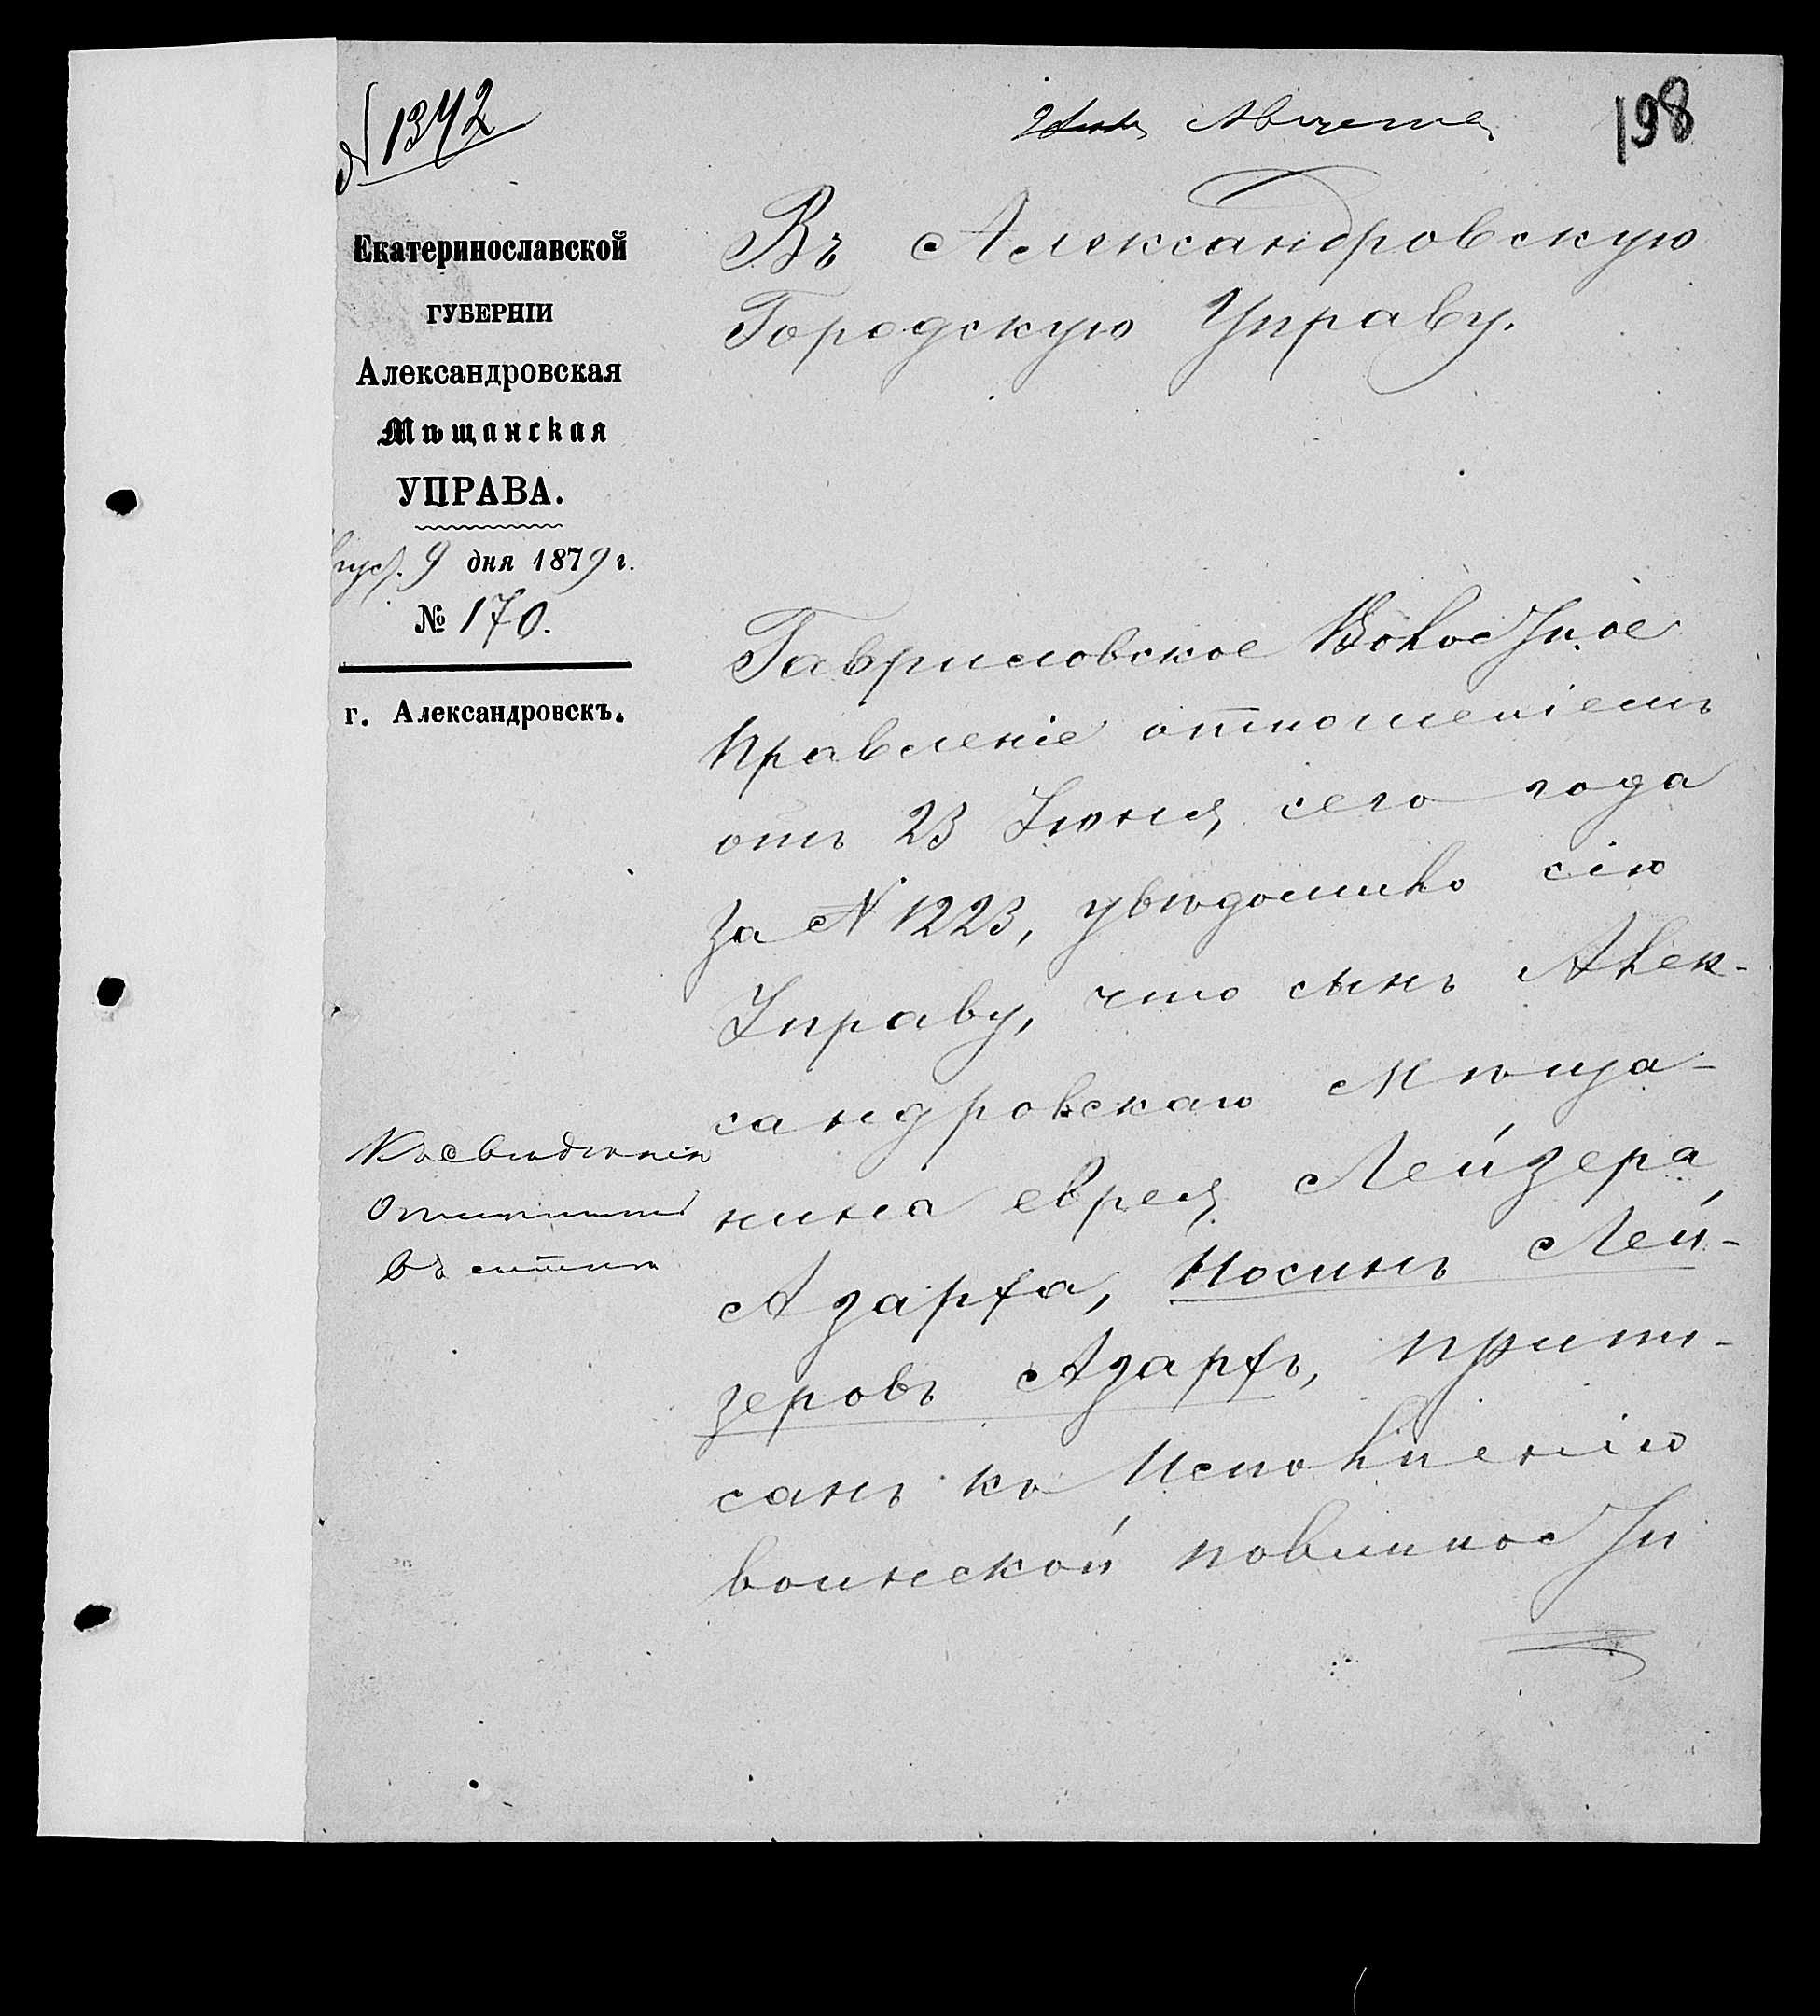 N 1342
Августа
198
Екатеринославской
ГУБЕРНІИ
Александровская
Мѣщанская
УПРАВА.
9 дня 1879 г.
№ 170.
г. Александровскъ.
Въ Александровскую
Городскую Управу.
Гавриловское Волостное
Правленіе отношеніемъ
отъ 23 Іюня, сего года
за N 1223, увѣдомило сію
Управу, что сынъ Алек-
сандровскаго Мѣща-
нина еврея Лейзера
Азарха, Иосинъ Лей-
зеровъ Азархъ, припи-
санъ къ Исполненію
воинской повинности
Къ свѣдѣнію
Отмѣтить
въ спискѣ